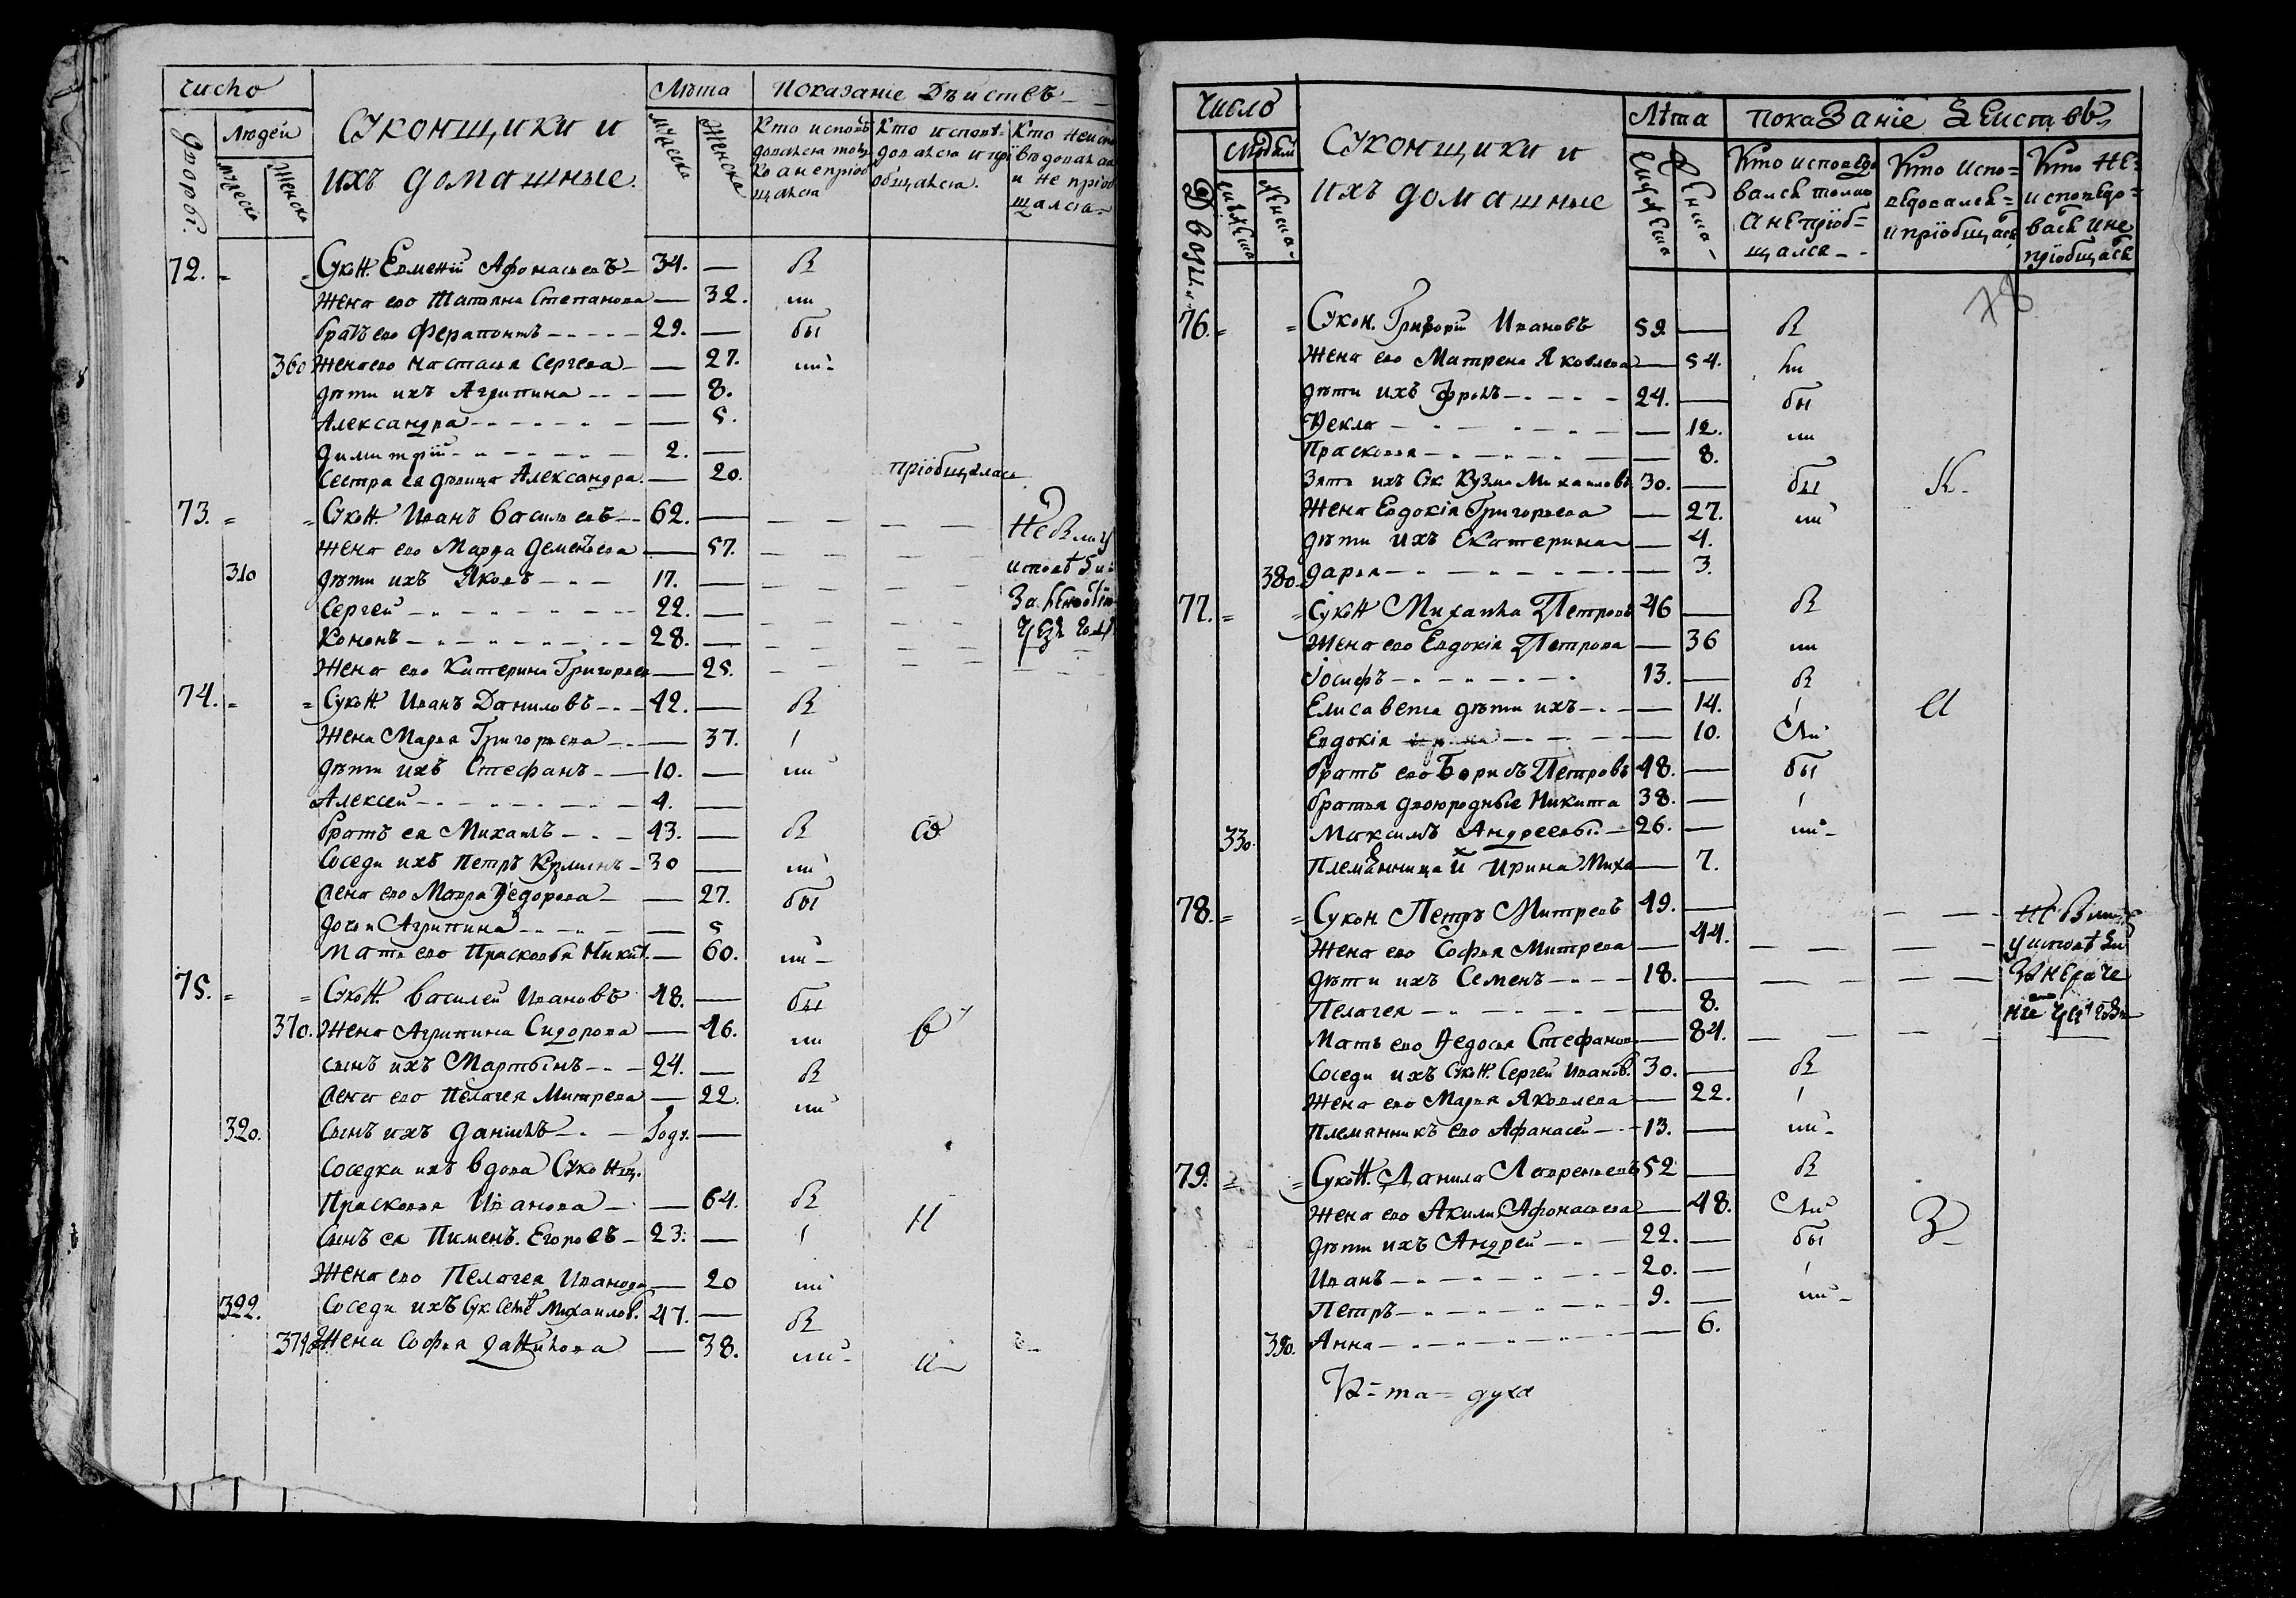 число
Лѣта
Показаніе Дѣиствъ
дворовъ
Людей
мужеска
женска
суконщики и
ихъ домашные.
мужеска
женска
Кто исповѣ
довался толь
ко а непріоб
щался
Кто исповѣ-
довался и прі
общался.
Кто неиспо
вѣдовался
и не пріоб
щался
72. Сукон. Евмений Афонасьевъ 34. — В
жена ево Татьяна Степанова — 32. ли
братъ ево Ферапонтъ 29. — бы
360 жена ево Настасья Сергеева — 27. ли
дѣти ихъ Агрипина — 8.
Александра — 5.
димитрій 2. —
сестра ея дѣвица Александра — 20. пріобщалась
73. Сукон. Иванъ Васильевъ 62. —
жена ево Марѳа Дементьева — 57.
310 дѣти ихъ Яковъ 17. —
Сергей 22. —
Кононъ 28. —
жена ево Катерина Григорьев — 25.
74. Сукон. Иванъ Даниловъ 42. — В
жена Марья Григорьева — 37.
дѣти ихъ Стефанъ 10. — ли
Алексей 4. —
братъ ея Михаилъ 43. — В
соседи ихъ Петръ Кузминъ 30 — ли
жена ево Мавра Ѳедорова — 27. бы
дочь Агрипина — 5
мать ево Прасковья Никит. — 60. ли
75. Сукон. Василей Ивановъ 48. — бы
370. жена Агрипина Сидорова — 46. ли в
сынъ ихъ Мартынъ 24. — В
жена ево Пелагея Митрева — 22. ли
320. сынъ ихъ Даніилъ 1 годъ. —
соседка ихъ вдова Суконщ.
Прасковья Иванова — 64. В и
сынъ ея Пименъ Егоровъ 23. —
жена ево Пелагея Иванова — 20 ли
322. соседи ихъ Сук Семенъ Михаилов. 47. — В
374 жена Софья Данилова — 38. ли
Число
Лѣта
показаніе дѣиствъ
Дворы
Людей
суконщики и
ихъ домашные
Кто исповѣдо
вался толко
а непріоб-
щался
Кто испо-
вѣдовался-
и пріобщась
Кто не-
исповѣдо-
вась и не
пріобщась
78
76. Сукон. Григорій Ивановъ 59. — В
жена ево Матрена Яковлева — 54. ли
дѣти ихъ Фролъ 24. — бы
Ѳекла — 12. ли
Прасковья — 8.
Зять ихъ Сук Кузма Михаиловъ 30. — бы
жена Евдокія Григорьева — 27. ли
дѣти ихъ Екатерина — 4.
380. дарья — 3.
77. Сукон Михаила Петровъ 46 — В
жена ево Евдокія Петрова — 36 ли
Іосифъ 13. — В
Елисавета дѣти ихъ — 14.
Евдокія — 10.
братъ ево Борисъ Петровъ 48. — бы
братья двоюродные Никита 38. —
330. Максимъ Андреевы 26. — ли
Племянница й Ирина Миха — 7.
78. Сукон Петръ Митревъ 49. —
жена ево Софья Митрева — 44.
дѣти ихъ Семенъ 18. —
Пелагея — 8.
Мать ево Ѳедосья Стефанов — 84.
соседи ихъ Сукон. Сергей Иванов. 30. — В
жена ево Марья Яковлева — 22.
племянникъ ево Афанасей 13. — ли
79. Сукон. Данила Лаврентьевъ 52 — В
жена ево Акили. Афонасьева — 48.
дѣти ихъ Андрей 22. — бы
Иванъ 20. —
Петръ 9. — ли
390. Анна — 6.
та= духа